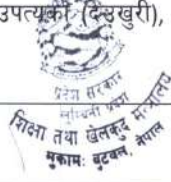 उपत्यका (देउखुरी),
प्रदेश सरकार
लुम्बिनी प्रदेश
शिक्षा तथा खेलकुद मन्त्रालय
मुकामः बुटवल, नेपाल